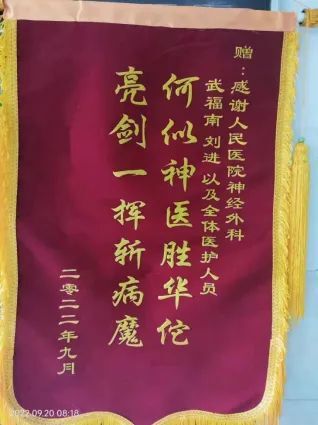 赠：感谢人民医院神经外科
武福南 刘进 以及全体医护人员
何似神医胜华佗
亮剑一挥斩病魔
二零二二年九月
2022.09.20 08:18